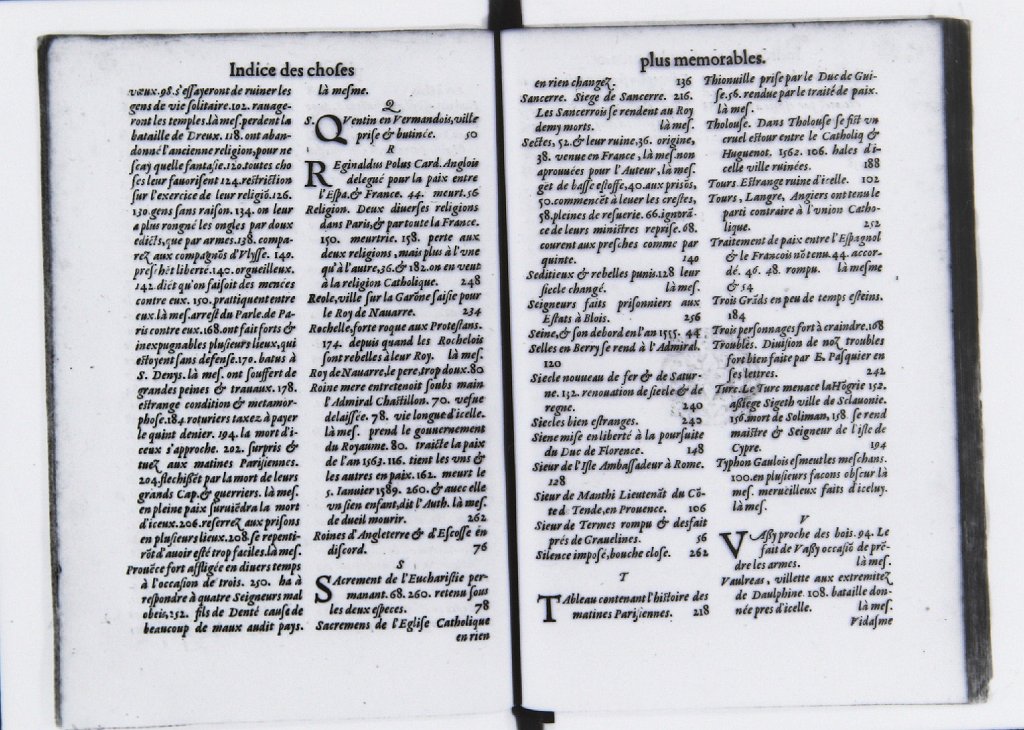 Indice des choſes
vœux. 98. s'eſſayeront de ruiner les
gens de vie ſolitaire. 102. rauage-
ront les temples. là meſ. perdent la
bataille de Dreux. 118. ont aban-
donné l'ancienne religion, pour ne
ſcay quelle fantaſie. 120. toutes cho
ſes leur fauoriſent 124. reſtriction
ſur l'exercice de leur religiõ. 126.
130. gens ſans raiſon. 134. on leur
a plus rongné les ongles par doux
edicts, que par armes. 138. compa-
rez aux compagnõs d'Vlyſſe. 140.
preſchẽt liberté. 140. orgueilleux.
142. dict qu'on faiſoit des menées
contre eux. 150. prattiquent entre
eux. là meſ. arreſt du Parle. de Pa-
ris contre eux. 168. ont fait forts &
inexpugnables pluſieurs lieux, qui
eſtoyent ſans defenſe. 170. batus à
S. Denys. là meſ. ont ſouffert de
grandes peines & trauaux. 178.
eſtrange condition & metamor-
phoſe. 184. roturiers taxez à payer
le quint denier. 194. la mort d'i-
ceux s'approche. 202. ſurpris &
tuez aux matines Pariſiennes.
204. flechiſſẽt par la mort de leurs
grands Cap. & guerriers. là meſ.
en pleine paix ſuruiẽdra la mort
d'iceux. 206. reſerrez aux priſons
en pluſieurs lieux. 208. ſe repenti-
rõt d'auoir eſté trop faciles. là meſ.
Prouẽce fort affligée en diuers temps
à l'occaſion de trois. 250. ha à
reſpondre à quatre Seigneurs mal
obeis, 252. fils de Denté cauſe de
beaucoup de maux audit pays.
là meſme.
Q
S. QVentin en Vermandois, ville
priſe & butinée. 50
R
REginaldus Polus Card. Anglois
delegué pour la paix entre
l'Eſpa. & France. 44. meurt. 56
Religion. Deux diuerſes religions
dans Paris, & par toute la France.
150. meurtrie. 158. perte aux
deux religions, mais plus à l'vne
qu'à l'autre, 36. & 182. on en veut
à la religion Catholique. 248
Reole, ville ſur la Garõne ſaiſie pour
le Roy de Nauarre. 234
Rochelle, forte roque aux Proteſtans.
174. depuis quand les Rochelois
ſont rebelles à leur Roy. là meſ.
Roy de Nauarre, le pere, trop doux. 80
Roine mere entretenoit ſoubs main
l'Admiral Chaſtillon. 70. vefue
delaiſſée. 78. vie longue d'icelle.
là meſ. prend le gouuernement
du Royaume. 80. traicte la paix
de l'an 1563. 116. tient les vns &
les autres en paix. 162. meurt le
5. Ianuier 1589. 260. & auec elle
vn ſien enfant, dit l'Auth. là meſ.
de dueil mourir. 262
Roines d'Angleterre & d'Eſcoſſe en
diſcord. 76
S
SAcrement de l'Euchariſtie per-
manant. 68. 260. retenu ſous
les deux eſpeces. 78
Sacremens de l'Egliſe Catholique
en rien
plus memorables.
en rien changez. 136
Sancerre. Siege de Sancerre. 216.
Les Sancerrois ſe rendent au Roy
demy morts. là meſ.
Sectes, 52. & leur ruine. 36. origine,
38. venue en France, là meſ. non
aprouuées pour l'Auteur, là meſ.
gẽt de baſſe eſtoffe, 40. aux priſõs,
50. commencẽt à leuer les creſtes,
58, pleines de reſuerie. 66. ignorã-
ce de leurs miniſtres repriſe. 68.
courent aux preſches comme par
quinte. 140
Seditieux & rebelles punis. 128 leur
ſiecle changé. là meſ.
Seigneurs faits priſonniers aux
Eſtats à Blois. 256
Seine, & ſon debord en l'an 1555. 44
Selles en Berry ſe rend à l'Admiral.
120
Siecle nouueau de fer & de Satur-
ne. 132. renouation de ſiecle & de
regne. 240
Siecles bien eſtranges. 240
Siene miſe en liberté à la pourſuite
du Duc de Florence. 148
Sieur de l'Iſle Ambaſſadeur à Rome.
128
Sieur de Manthi Lieutenãt du Cõ-
te d Tende, en Prouence. 106
Sieur de Termes rompu & desfait
prés de Grauelines. 56
Silence impoſé, bouche cloſe. 262
T
TAbleau contenant l'hiſtoire des
matines Pariſiennes. 218
Thionuille priſe par le Duc de Gui-
ſe. 56. rendue par le traité de paix.
là meſ.
Tholouſe. Dans Tholouſe ſe fiſt vn
cruel eſtour entre le Catholiq &
Huguenot. 1562. 106. hales d'i-
celle ville ruinées. 188
Tours. Eſtrange ruine d'icelle. 102
Tours, Langre, Angiers ont tenu le
parti contraire à l'vnion Catho-
lique. 252
Traitement de paix entre l'Eſpagnol
& le Francois nõ tenu. 44. accor-
dé. 46. 48. rompu. là meſme
& 54
Trois Grãds en peu de temps eſteins.
184
Trois perſonnages fort à craindre. 168
Troubles. Diuiſion de noz troubles
fort bien faite par E. Paſquier en
ſes lettres. 242
Turc. Le Turc menace la Hõgrie 152.
aſſiege Sigeth ville de Sclauonie.
156. mort de Soliman, 158. ſe rend
maiſtre & Seigneur de l'iſle de
Cypre. 194
Typhon Gaulois eſmeut les meſchans.
100. en pluſieurs façons obſcur là
meſ. merueilleux faits d'iceluy.
là meſ.
V
VAſſy proche des bois. 94. Le
fait de Vaſſy occaſiõ de prẽ-
dre les armes. là meſ.
Vaulreas, villette aux extremitez
de Daulphine. 108. bataille don-
née pres d'icelle. là meſ.
Vidaſme